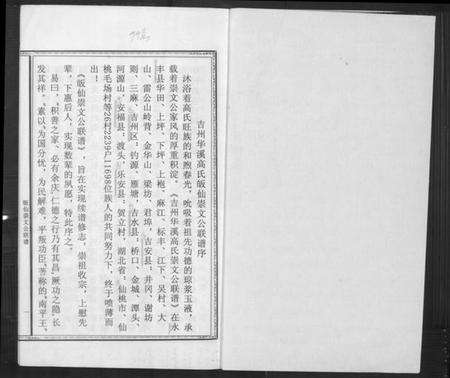 吉州华溪高氏皈仙崇文公联谱序
沐浴着高氏旺族的和煦春光，吮吸着祖先功德的琼浆玉液，承
载着崇文公家风的厚重积淀。《吉州华溪高氏崇文公联谱》在永
丰县华田、上坪、下坪、上枹、麻江、标丰、江下、吴村、大
山、雷公山岭背、金华山、梁坊、君埠，吉安县：井冈、谢坊
则、三麻，吉州区：钓源、雁塘，吉水县：桥口、金城、潭头、
河源山，安福县：渡头，乐安县：贺立村，湖北省：仙桃市、仙
桃毛场村等26村2239户11698位族人的共同努力下，终于喷薄而
出！
《皈仙崇文公联谱》，旨在实现续谱修志，崇祖收宗，上慰先
辈，下惠后人，实现数辈的夙愿，特此序之。
易曰，积善之家，必有余庆，仁德之行乃有其昌。厥功之隐，长
发其祥。素以“为国分忧，为民解难，平叛功臣”著称的“南平王”
皈仙崇文公联谱
一